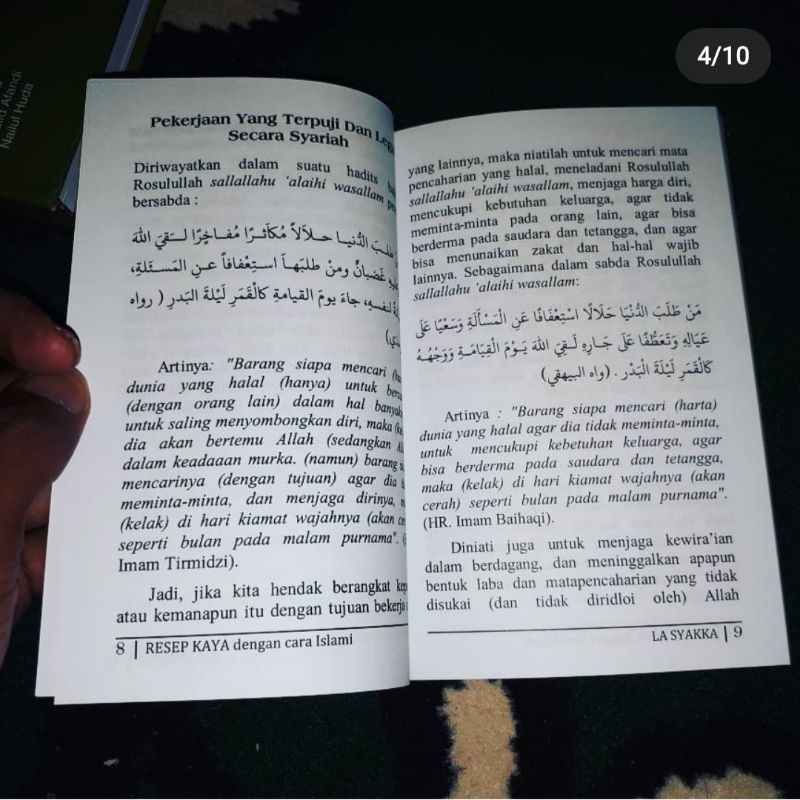 4/10
Afandi
Nailul Huda
Pekerjaan Yang Terpuji Dan
Secara Syariah
Diriwayatkan dalam suatu hadits
Rosulullah sallallahu 'alaihi wasallam
bersabda :
طلبَ الدُّنيـا حـلالاً مُكاثـرًا مُفـاخِرًا لـقيَ اللهَ
غضبانٌ ومنْ طلبَهـا استِعْفافاً عـنِ المَسـئلةِ،
لنفسهِ، جاءَ يومَ القيامةِ كالْقمَرِ ليْلةَ البَدرِ ( رواه
Artinya: "Barang siapa mencari
dunia yang halal (hanya) untuk
(dengan orang lain) dalam hal
untuk saling menyombongkan diri, maka
dia akan bertemu Allah (sedangkan
dalam keadaaan murka. (namun) barang
mencarinya (dengan tujuan) agar dia
meminta-minta, dan menjaga dirinya,
(kelak) di hari kiamat wajahnya (akan
seperti bulan pada malam purnama".
Imam Tirmidzi).
Jadi, jika kita hendak berangkat
atau kemanapun itu dengan tujuan bekerja
8 | RESEP KAYA dengan cara Islami
yang lainnya, maka niatilah untuk mencari mata
pencaharian yang halal, meneladani Rosulullah
sallallahu 'alaihi wasallam, menjaga harga diri,
mencukupi kebutuhan keluarga, agar tidak
meminta-minta pada orang lain, agar bisa
berderma pada saudara dan tetangga, dan agar
bisa menunaikan zakat dan hal-hal wajib
lainnya. Sebagaimana dalam sabda Rosulullah
sallallahu 'alaihi wasallam:
مَنْ طَلَبَ الدُّنْيَا حَلَالًا اسْتِعْفَافًا عَنِ الْمَسْأَلَةِ وَسَعْيًا عَلَى
عَيَالِهِ وَتَعَطُّفًا عَلَى جَارِهِ لَقِيَ اللهَ يَوْمَ الْقِيَامَةِ وَوَجْهُهُ
كَالْقَمَرِ لَيْلَةَ الْبَدْرِ . (واه البيهقي)
Artinya : "Barang siapa mencari (harta)
dunia yang halal agar dia tidak meminta-minta,
untuk mencukupi kebetuhan keluarga, agar
bisa berderma pada saudara dan tetangga,
maka (kelak) di hari kiamat wajahnya (akan
cerah) seperti bulan pada malam purnama".
(HR. Imam Baihaqi).
Diniati juga untuk menjaga kewira'ian
dalam berdagang, dan meninggalkan apapun
bentuk laba dan matapencaharian yang tidak
disukai (dan tidak diridloi oleh) Allah
LA SYAKKA | 9